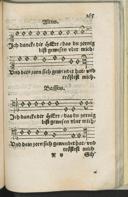 Altus.
Ich dancke dir HErr / das du zornig
bist gewesen uber mich
Und dein zorn sich gewendet hat / und
tröstest mich.
Bassus.
Ich dancke dir HErr / das du zornig
bist gewesen uber mich
Und dein zorn sich gewendet hat / und
tröstest mich.